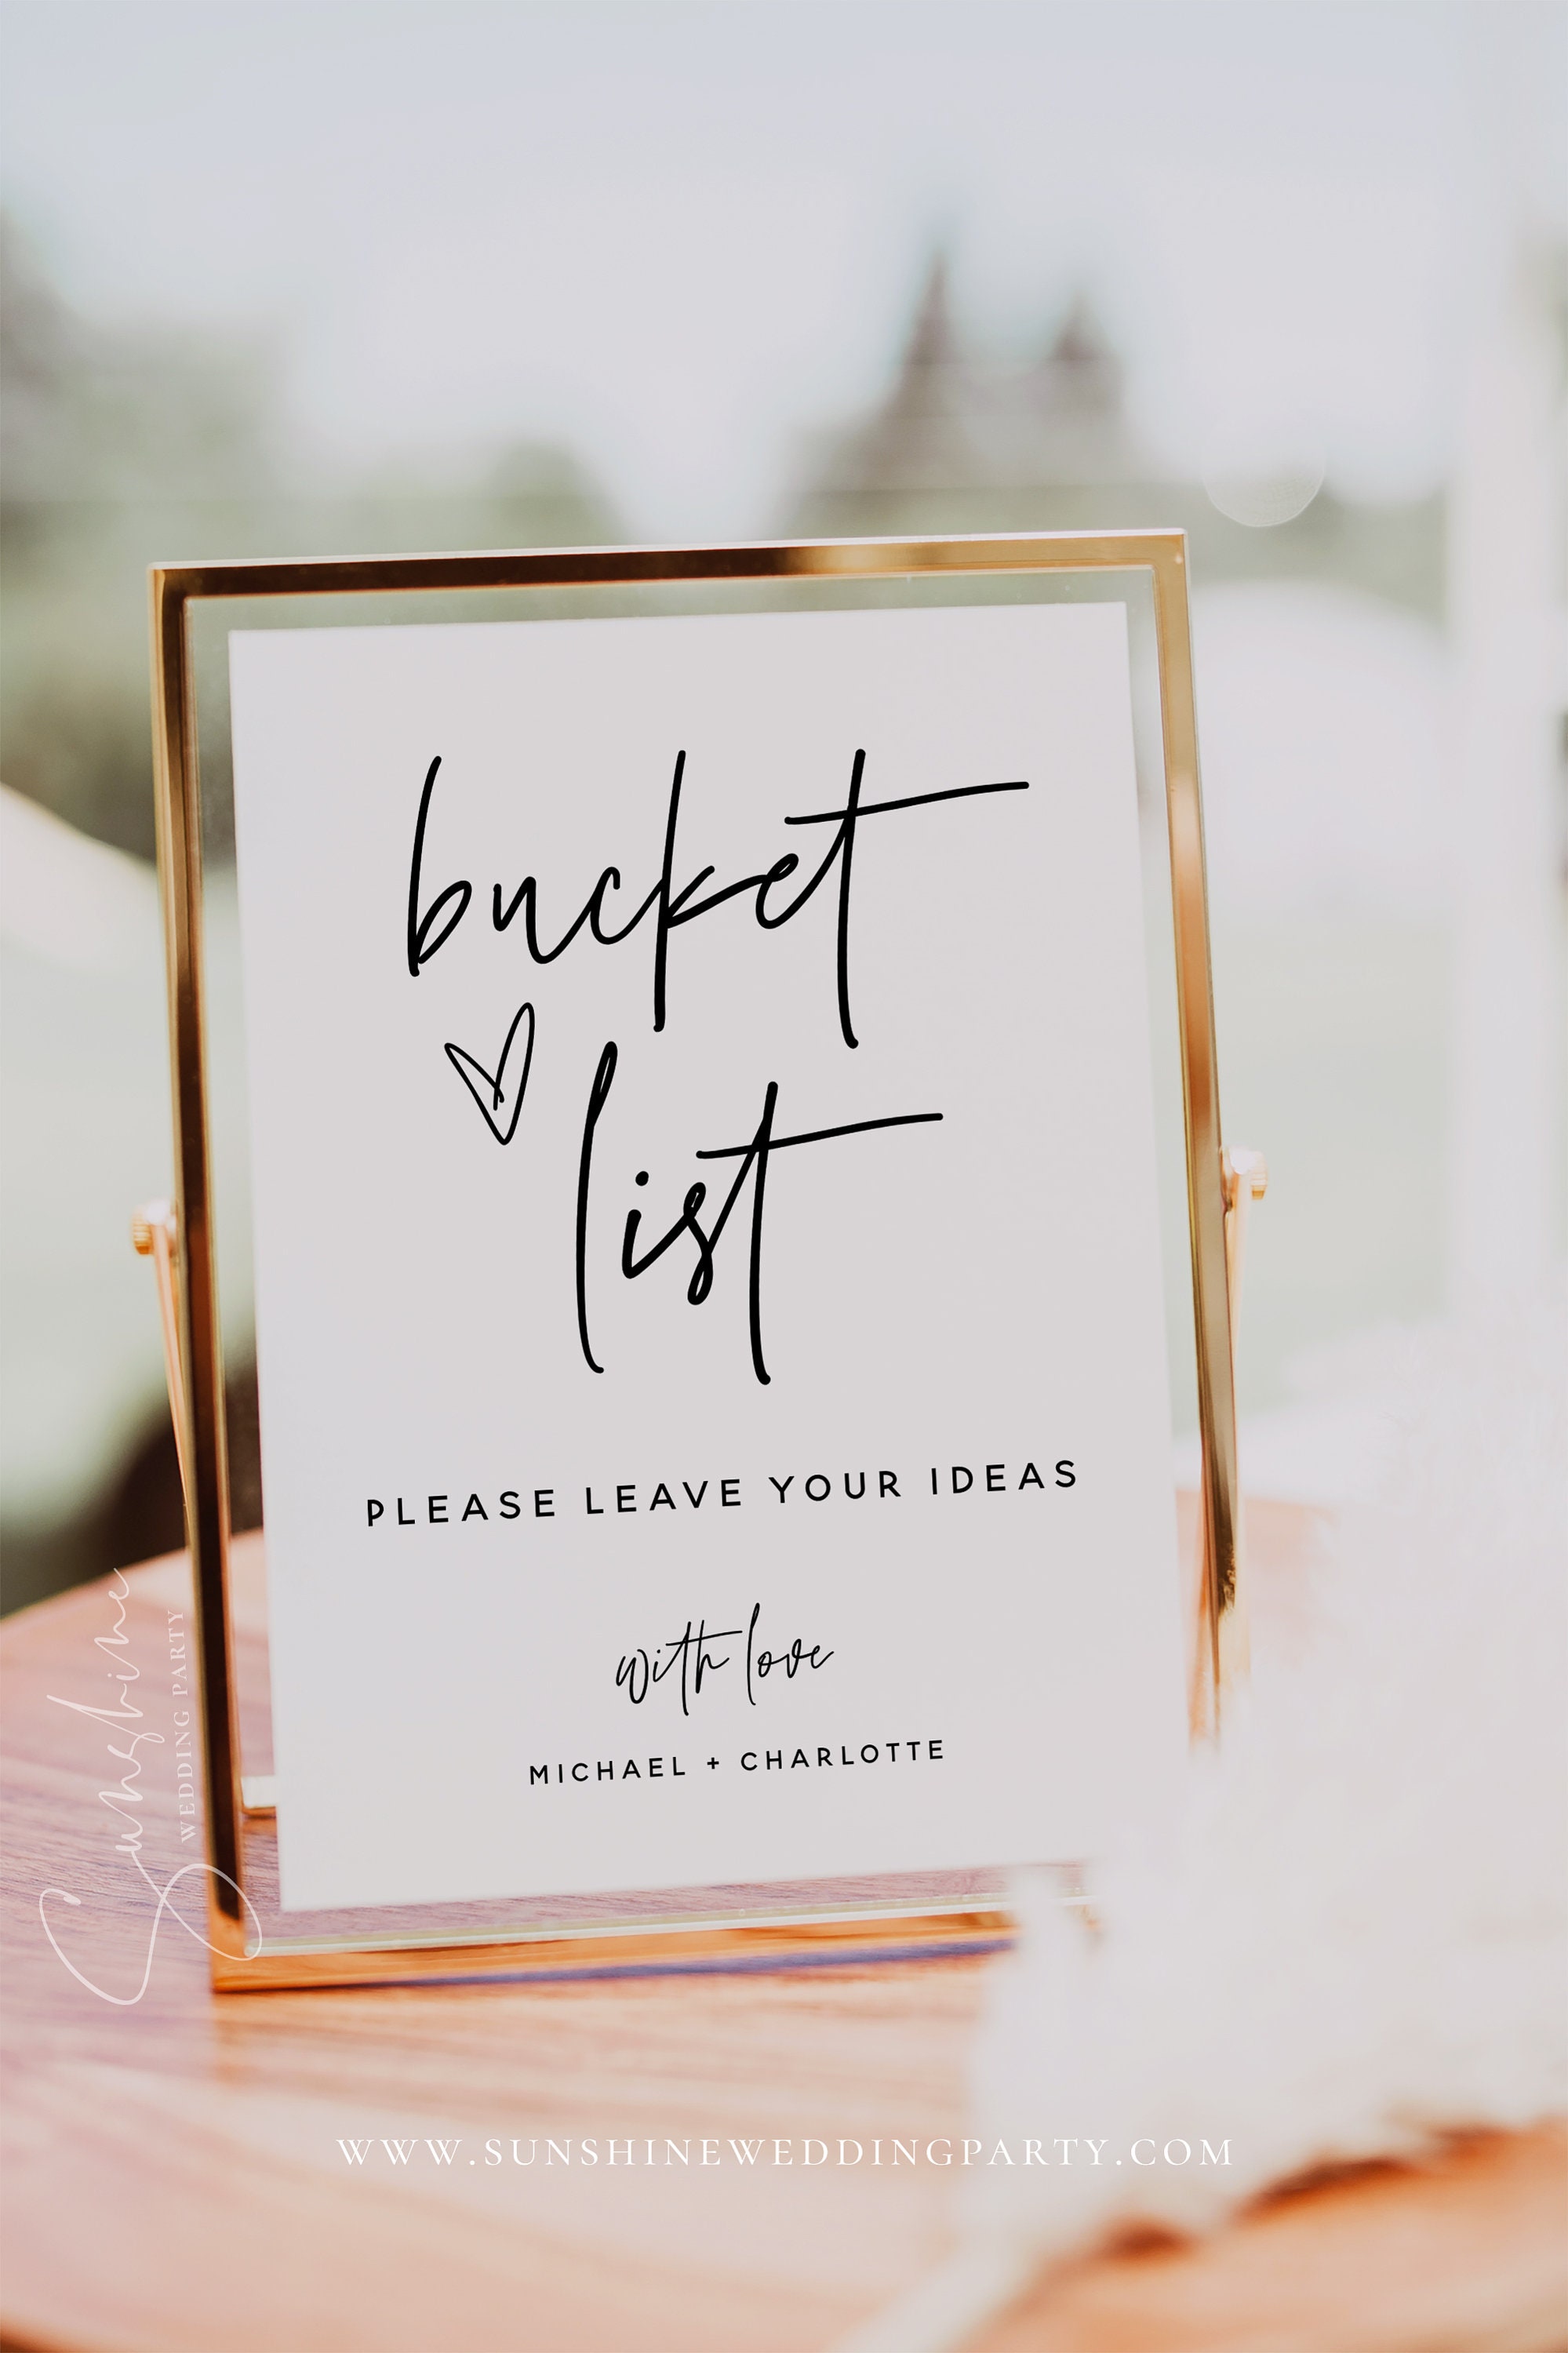 bucket
list
PLEASE LEAVE YOUR IDEAS
with love
MICHAEL + CHARLOTTE
Sunshine
WEDDING PARTY
WWW.SUNSHINEWEDDINGPARTY.COM